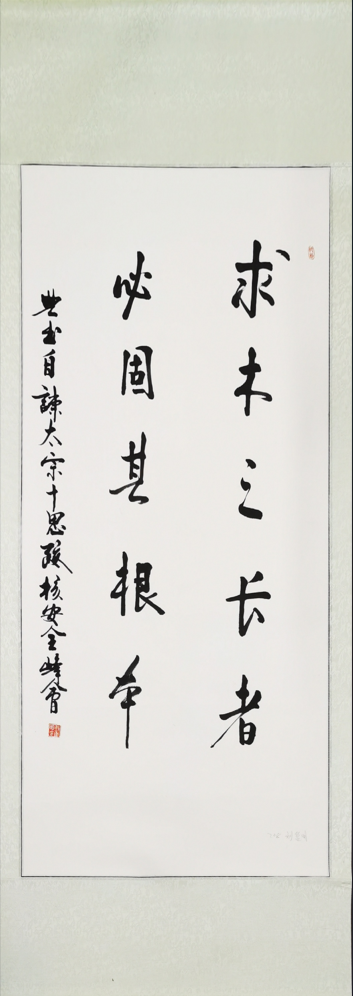 求木之长者
必固其根本
典出自谏太宗十思疏核安全峰会